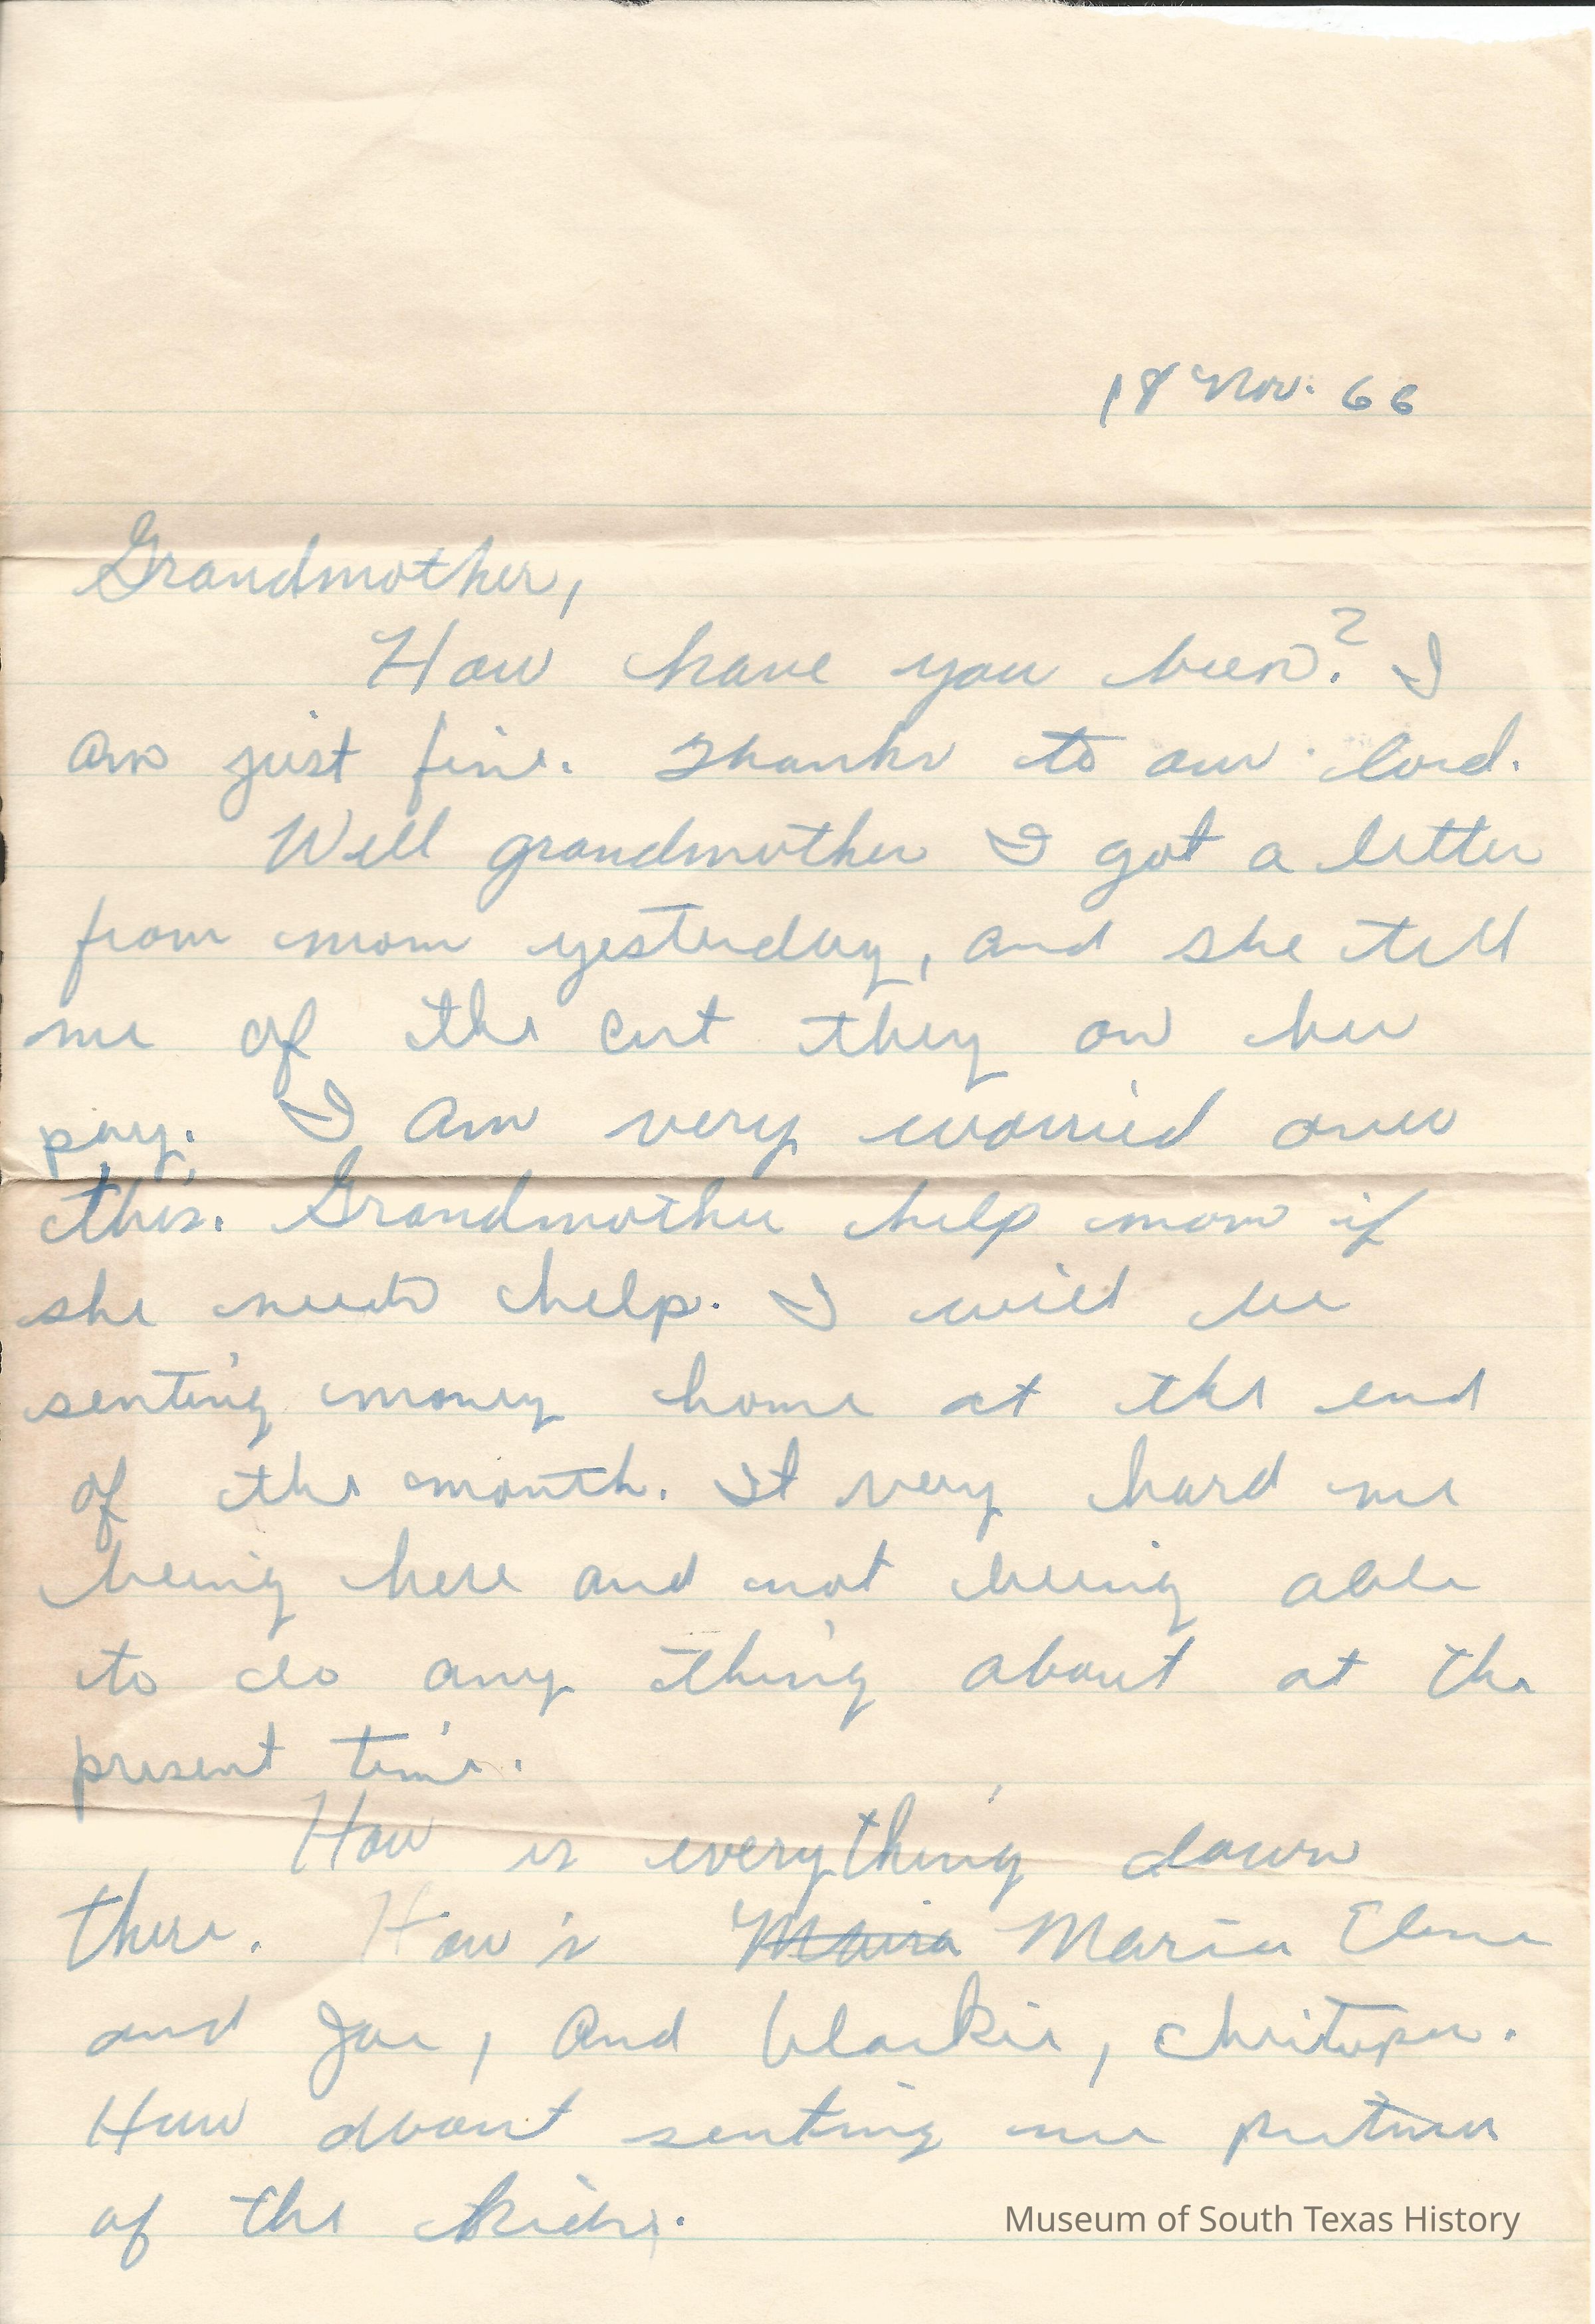 18 Nov. 66
Grandmother,
How have you been? I
am just fine. Thanks to our lord.
Well grandmother I got a letter
from mom yesterday, and she tell
me of the cut they on her
pay. I am very worried over
this. Grandmother help mom if
she needs help. I will be
senting money home at the end
of the month. It very hard me
being here and not being able
to do any thing about at the
present time.
How is everything down
there. How's Maira Maria Elena
and Joe, and blackie, Chritoper.
How about senting me pictures
of the kids.
Museum of South Texas History